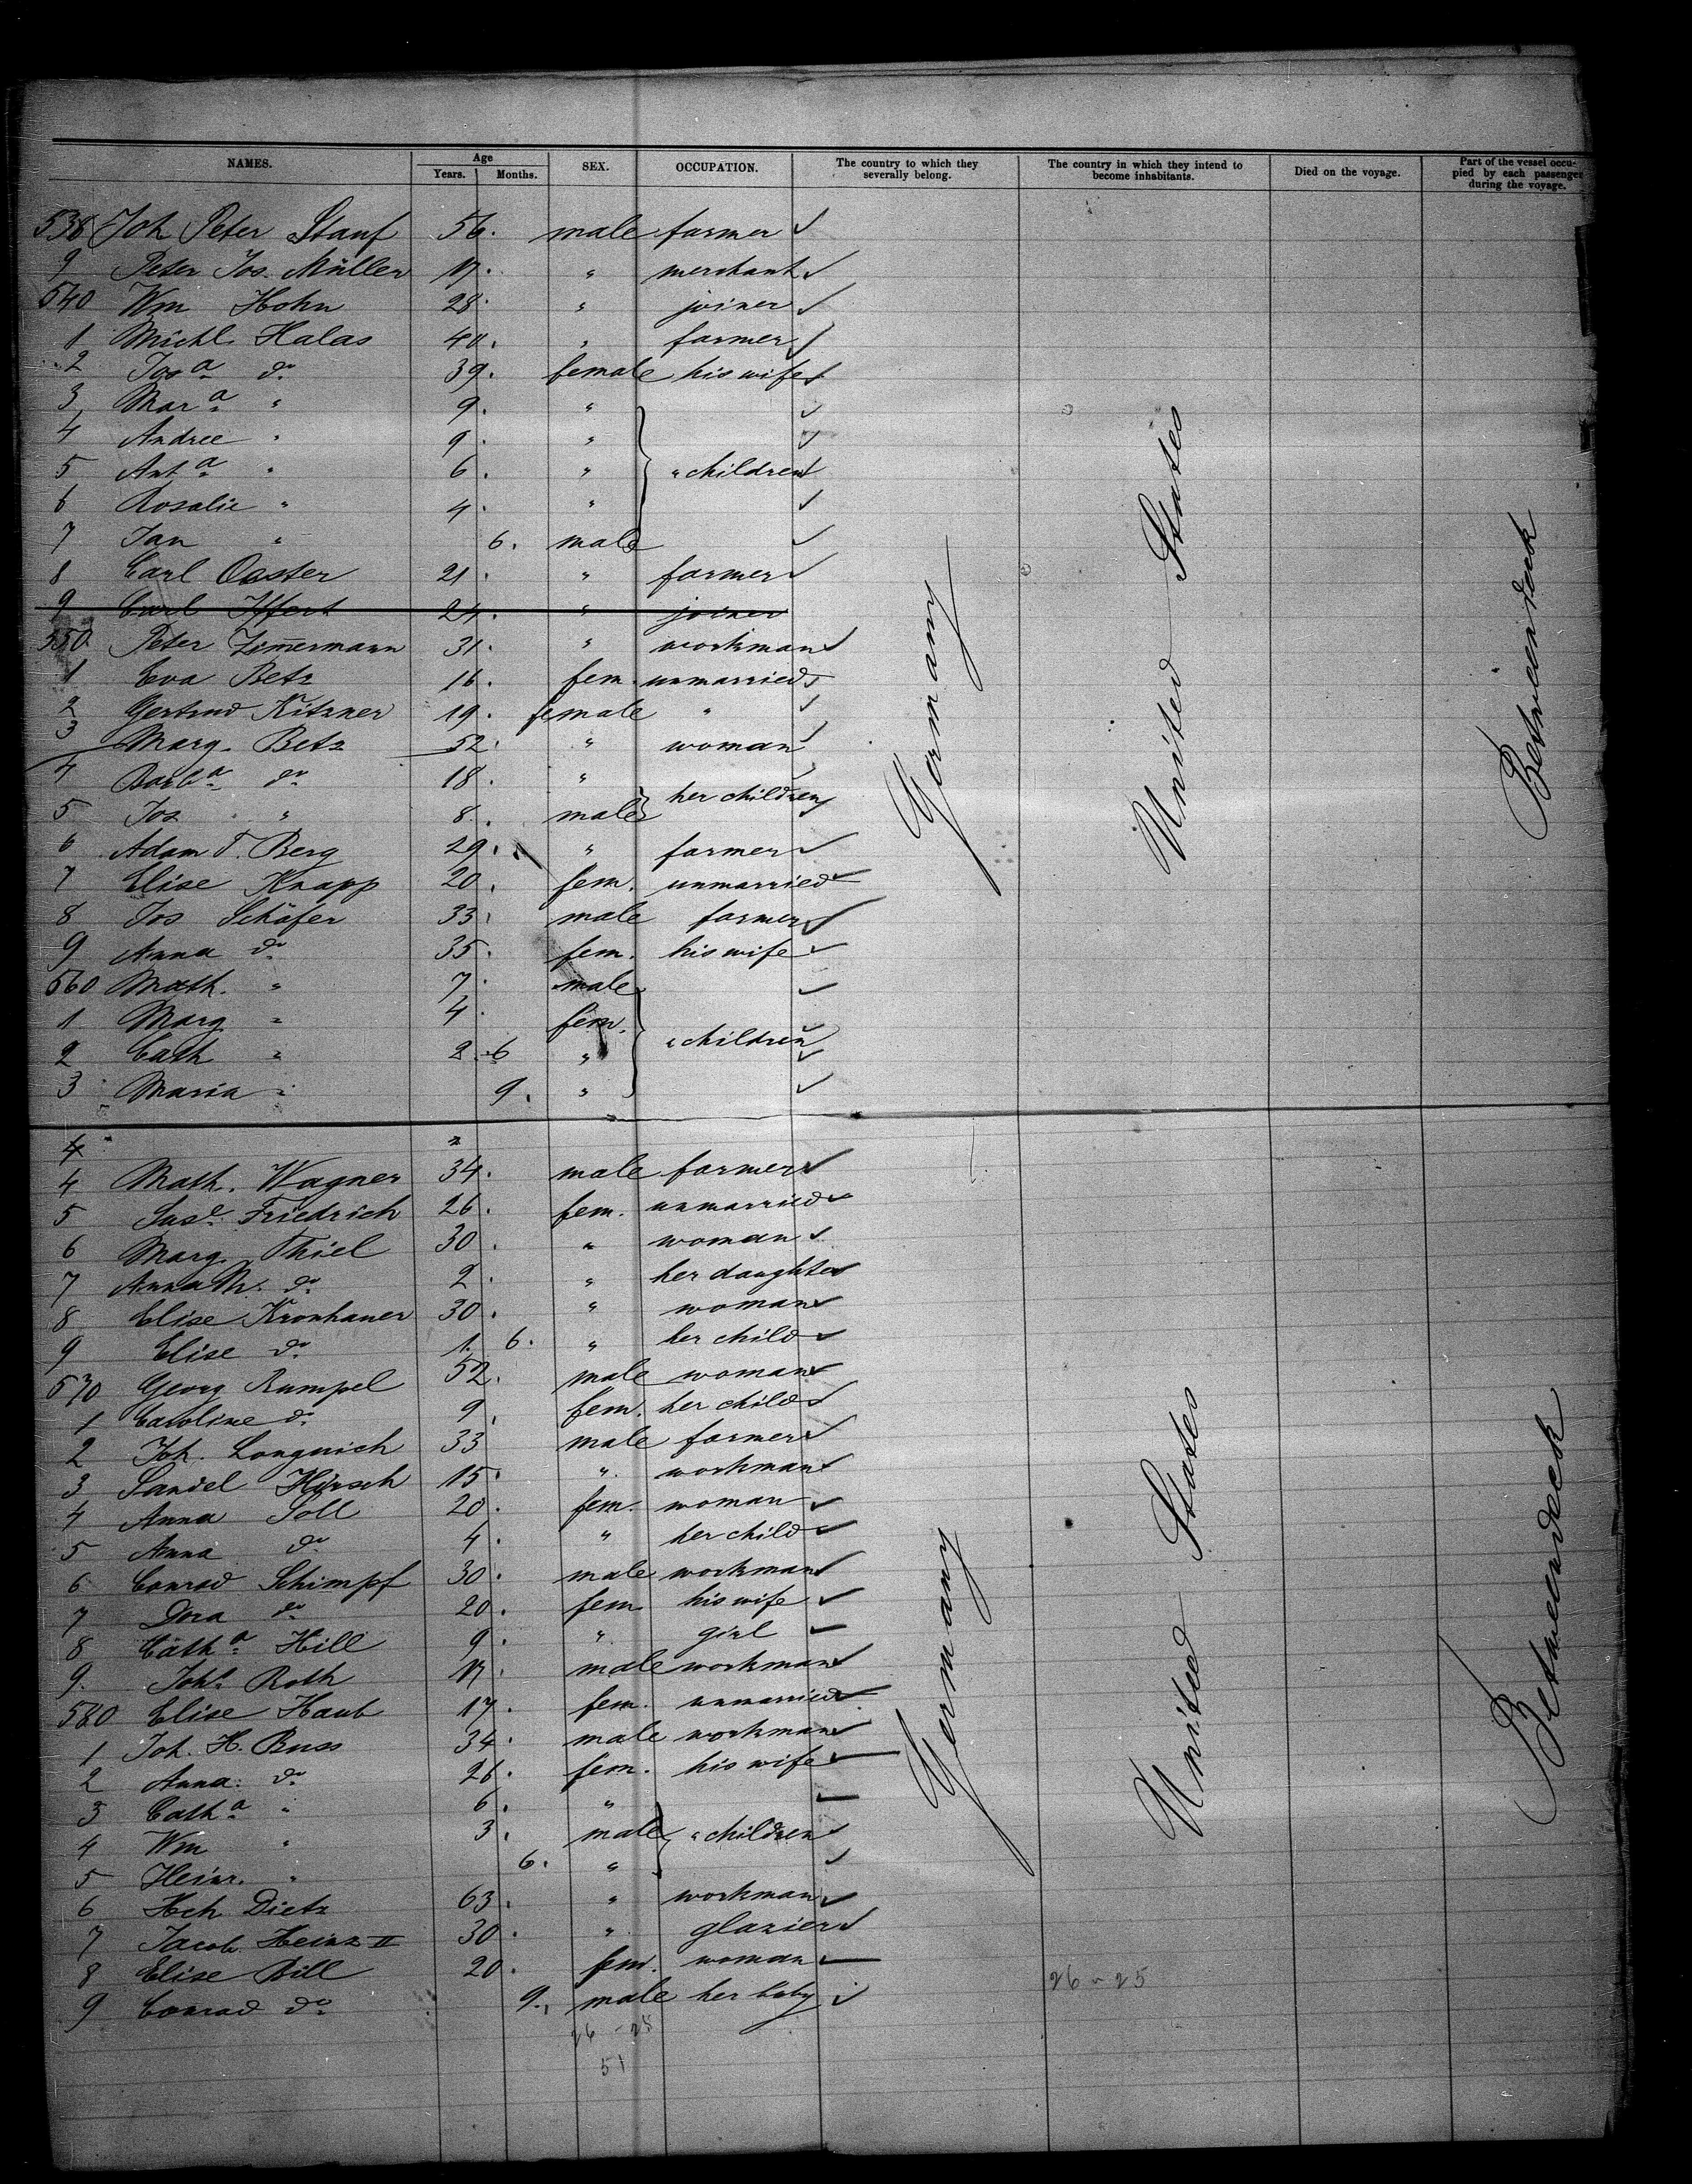 NAMES. Age Years. Months. SEX. OCCUPATION. The country to which they severally belong. The country in which they intend to become inhabitants. Died on the voyage. Part of the vessel occupied by each passenger during the voyage.
538 Joh Peter Stauf 56. male farmer ✓
9 Peter Jos. Müller 17. " merchant ✓
540 Wm Hohn 28. " joiner ✓
1 Michl. Halas 40. " farmer ✓
2 Josa do 39. female his wife ✓
3 Mara " 9. " ✓
4 Andree " 9. " ✓
5 Anta " 6. " " children ✓
6 Rosalie " 4. " ✓
7 Jan " 6. male ✓
8 Carl Oaster 21. " farmer ✓
9 Carl Iffert 24. " joiner
550. Peter Zimmermann 31. " workman ✓
1 Eva Betz 16. fem. unmarried ✓
2 Gertrud Kitzner 19. female " ✓
3 Marg. Betz 52. " woman ✓
4 Barba do 18. " her children ✓
5 Jos " 8. male ✓
6 Adam T. Berg 29. " farmer ✓
7 Elise Knapp 20. fem. unmarried ✓
8 Jos Schäfer 33. male farmer ✓
9 Anna do 35. fem. his wife ✓
560 Math. " 7. male ✓
1 Marg " 4. fem. ✓
2 Cath " 2. 6 " " children ✓
3 Maria " 9. " ✓
4
4 Math. Wagner 34. male farmer ✓
5 Suse. Friedrich 26. fem. unmarried ✓
6 Marg. Thiel 30. " woman ✓
7 Anna M. do 2. " her daughter ✓
8 Elise Kronhauer 30. " woman ✓
9 Elise do 1. 6. " her child ✓
570 Georg Rumpel 52. male woman ✓
1 Caroline do 9. fem. her child ✓
2 Joh. Longuich 33 male farmer ✓
3 Sandel Hirsch 15. " workman ✓
4 Anna Soll 20. fem. woman ✓
5 Anna do 4. " her child ✓
6 Conrad Schimpf 30. male workman ✓
7 Dora do 20. fem his wife ✓
8 Catha Hill 9. " girl ✓
9. Joha Roth 17. male workman ✓
580 Elise Haub 17. fem. unmarried ✓
1 Joh. H. Buss 34. male workman ✓
2 Anna. do 26. fem. his wife ✓
3 Catha " 6. " ✓
4 Wm " 3. male " children ✓
5 Heinr. " 6. " ✓
6 Hch Dietz 63. " workman ✓
7 Jacob Heinz II 30. " glazier ✓
8 Elise Bill 20. fem. woman ✓
9 Conrad do 9. male her baby ✓
26 - 25
51
Germany
United States
Betweendeck
Germany
United States
Betweendeck
26 - 25